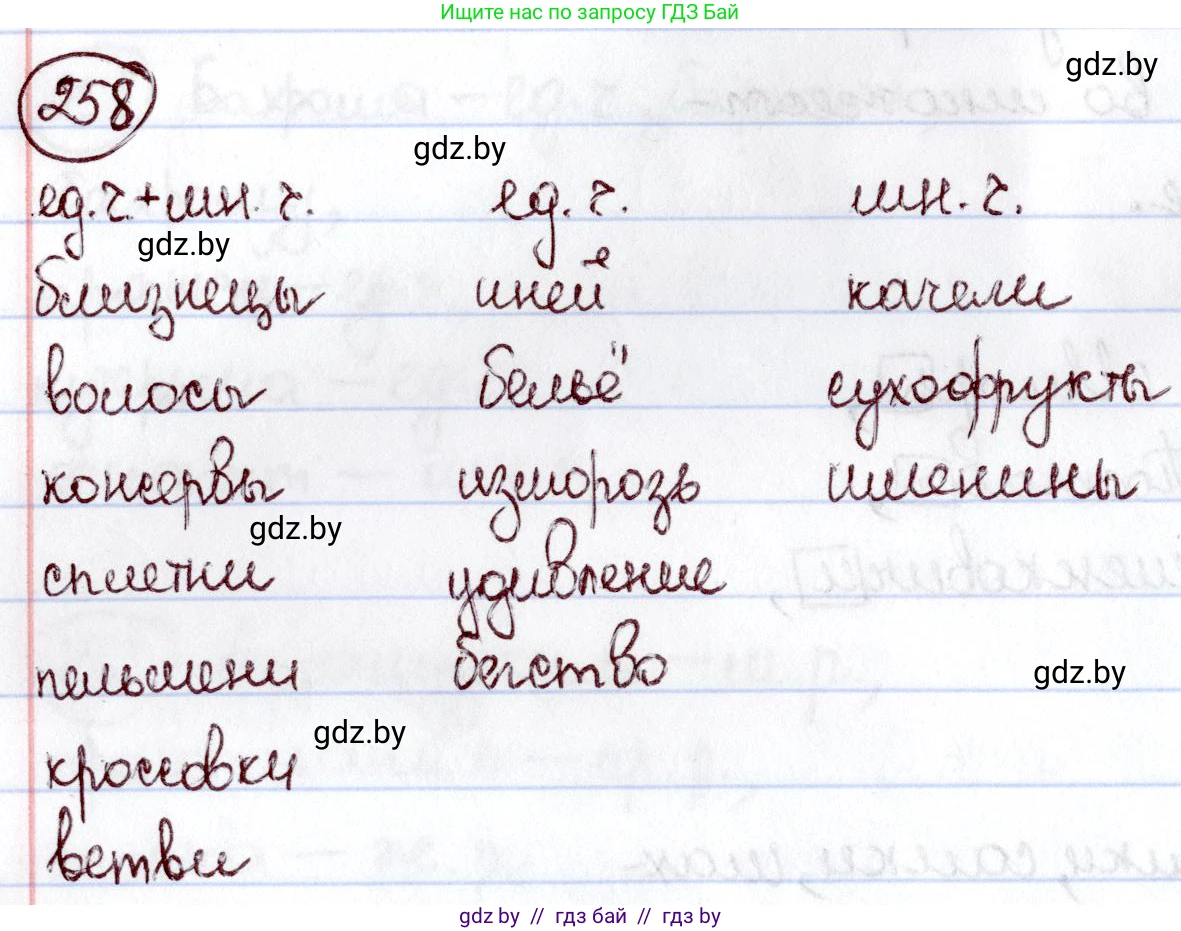 Ищите нас по запросу ГДЗ Бай
gdz.by
258
gdz.by
ед.ч.+мн.ч. ед.ч. мн.ч.
gdz.by
близнецы иней качели
волосы бельё сухофрукты
консервы изморозь именины
gdz.by
сплетни удивление
пельмени бегство
gdz.by
gdz.by
кроссовки
ветви
gdz.by // гдз бай // гдз by